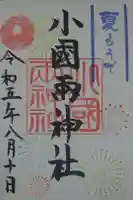 夏もうで
小國兩神社
令和五年八月十日